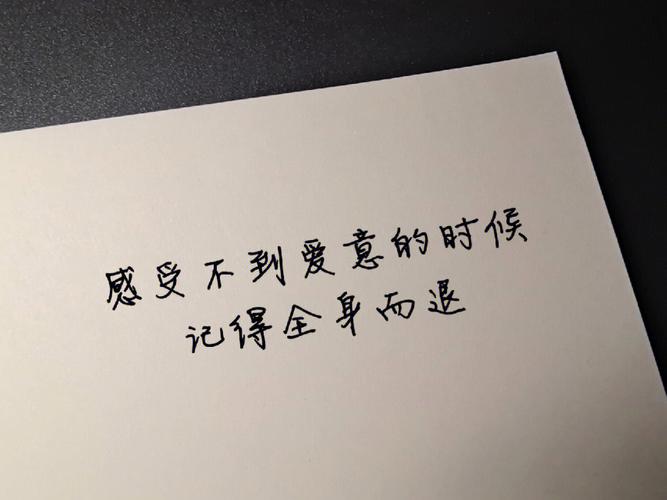 感受不到爱意的时候
记得全身而退